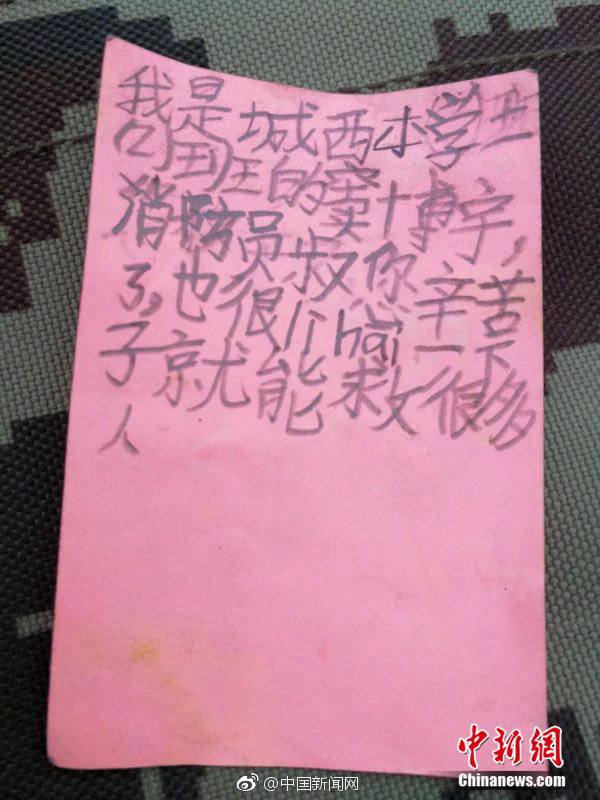 我是城西小学一
(1)班的窦博宇,
消防员叔你辛苦
了,也很lihai一下
子就能救很多
人
@中国新闻网
中新网
Chinanews.com